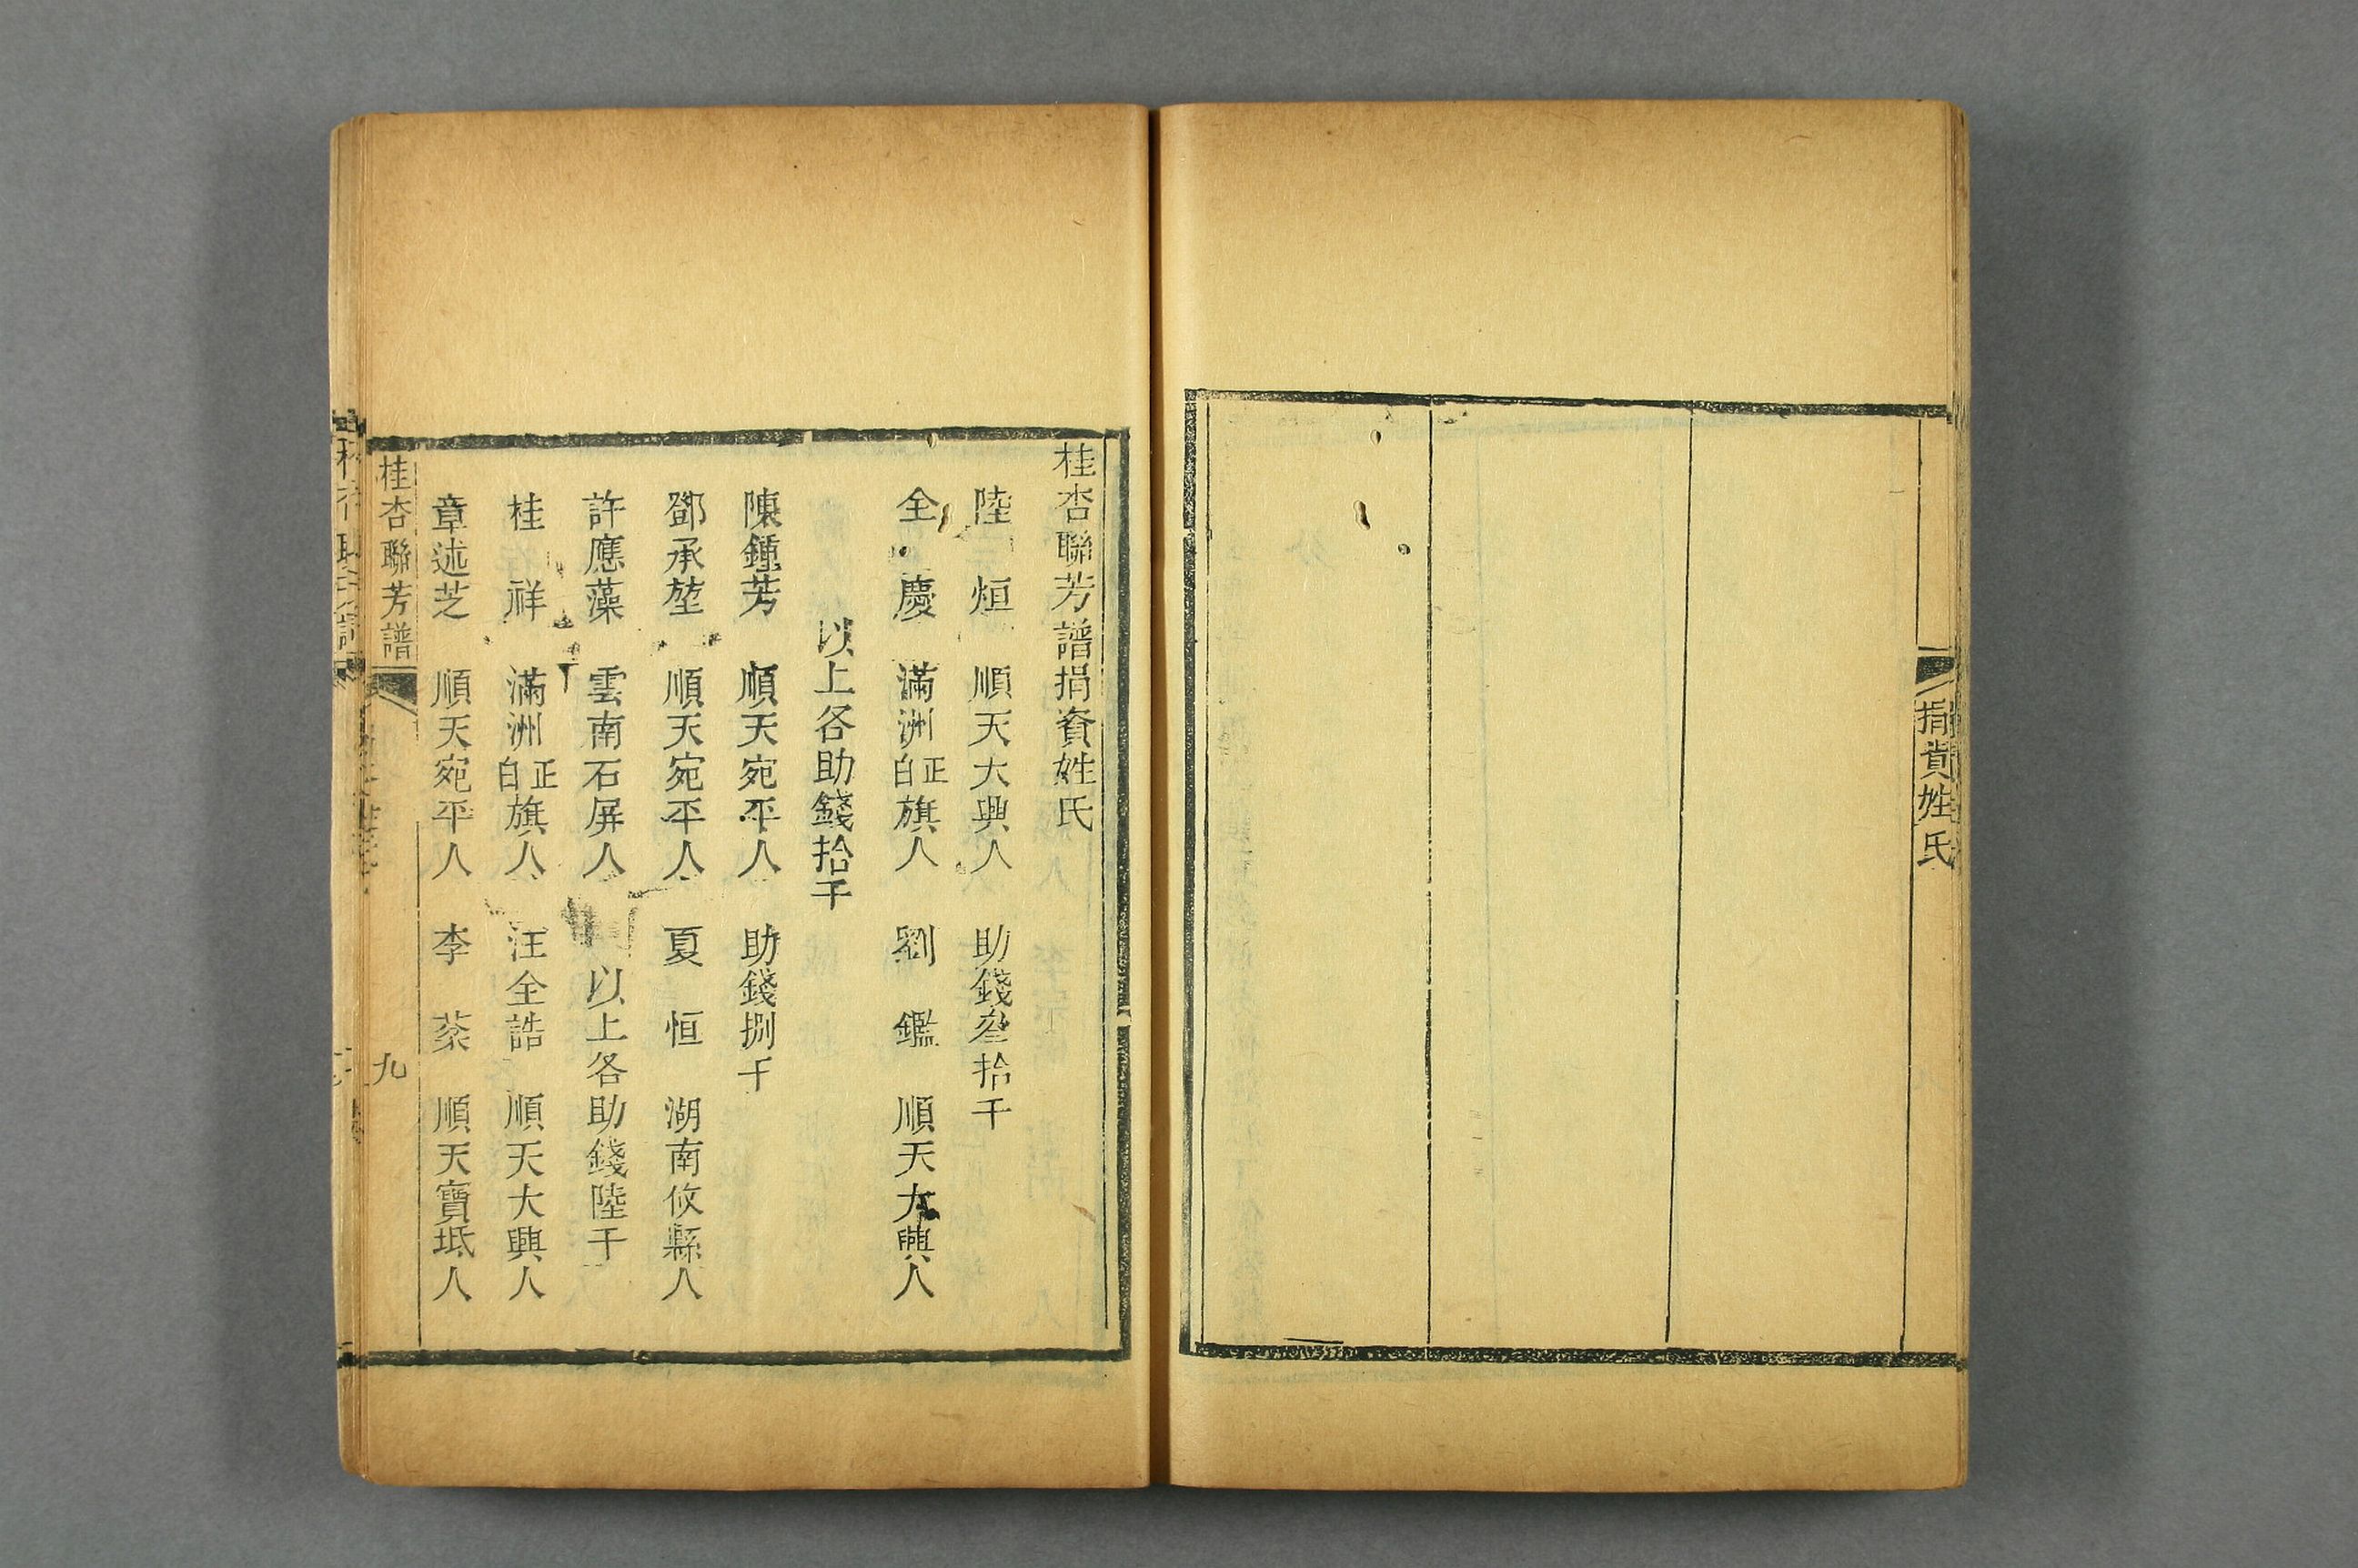 捐貲姓氏
桂杏聯芳譜捐資姓氏
陸 烜 順天大興人 助錢叁拾千
全 慶 滿洲正白旗人 劉 鑑 順天大興人
以上各助錢拾千
陳鍾芳 順天宛平人 助錢捌千
鄧承堃 順天宛平人 夏 恒 湖南攸縣人
許應藻 雲南石屏人 以上各助錢陸千
桂 祥 滿洲正白旗人 汪全誥 順天大興人
章述芝 順天宛平人 李 棻 順天寶坻人
桂杏聯芳譜 九